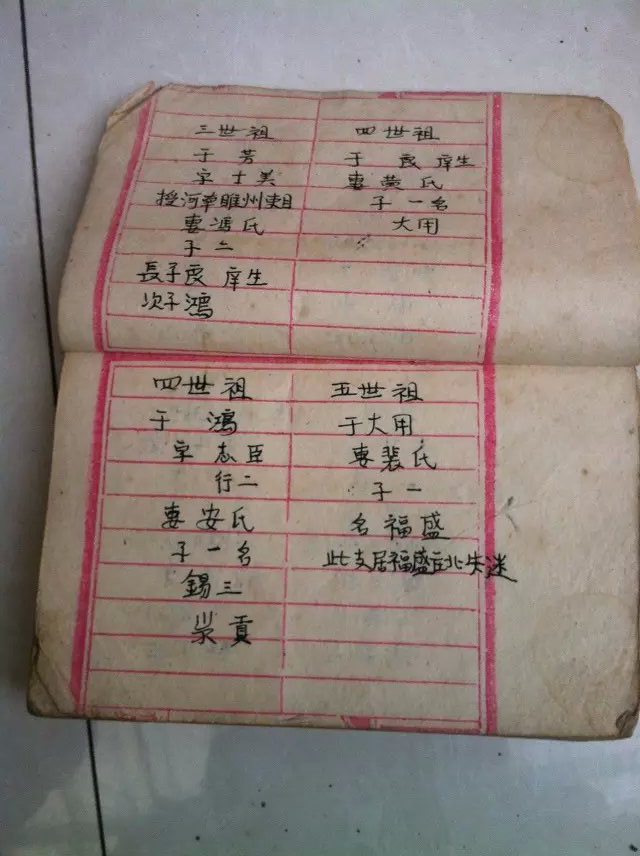 三世祖
于芳
字士美
授河南睢州吏目
妻馮氏
子二
長子 庠生
次子鴻
四世祖
于 庠生
妻黄氏
子一名
大用
四世祖
于鴻
字志臣
行二
妻安氏
子一名
錫三
貢
五世祖
于大用
妻裴氏
子一
名福盛
此支居福盛 北失迷